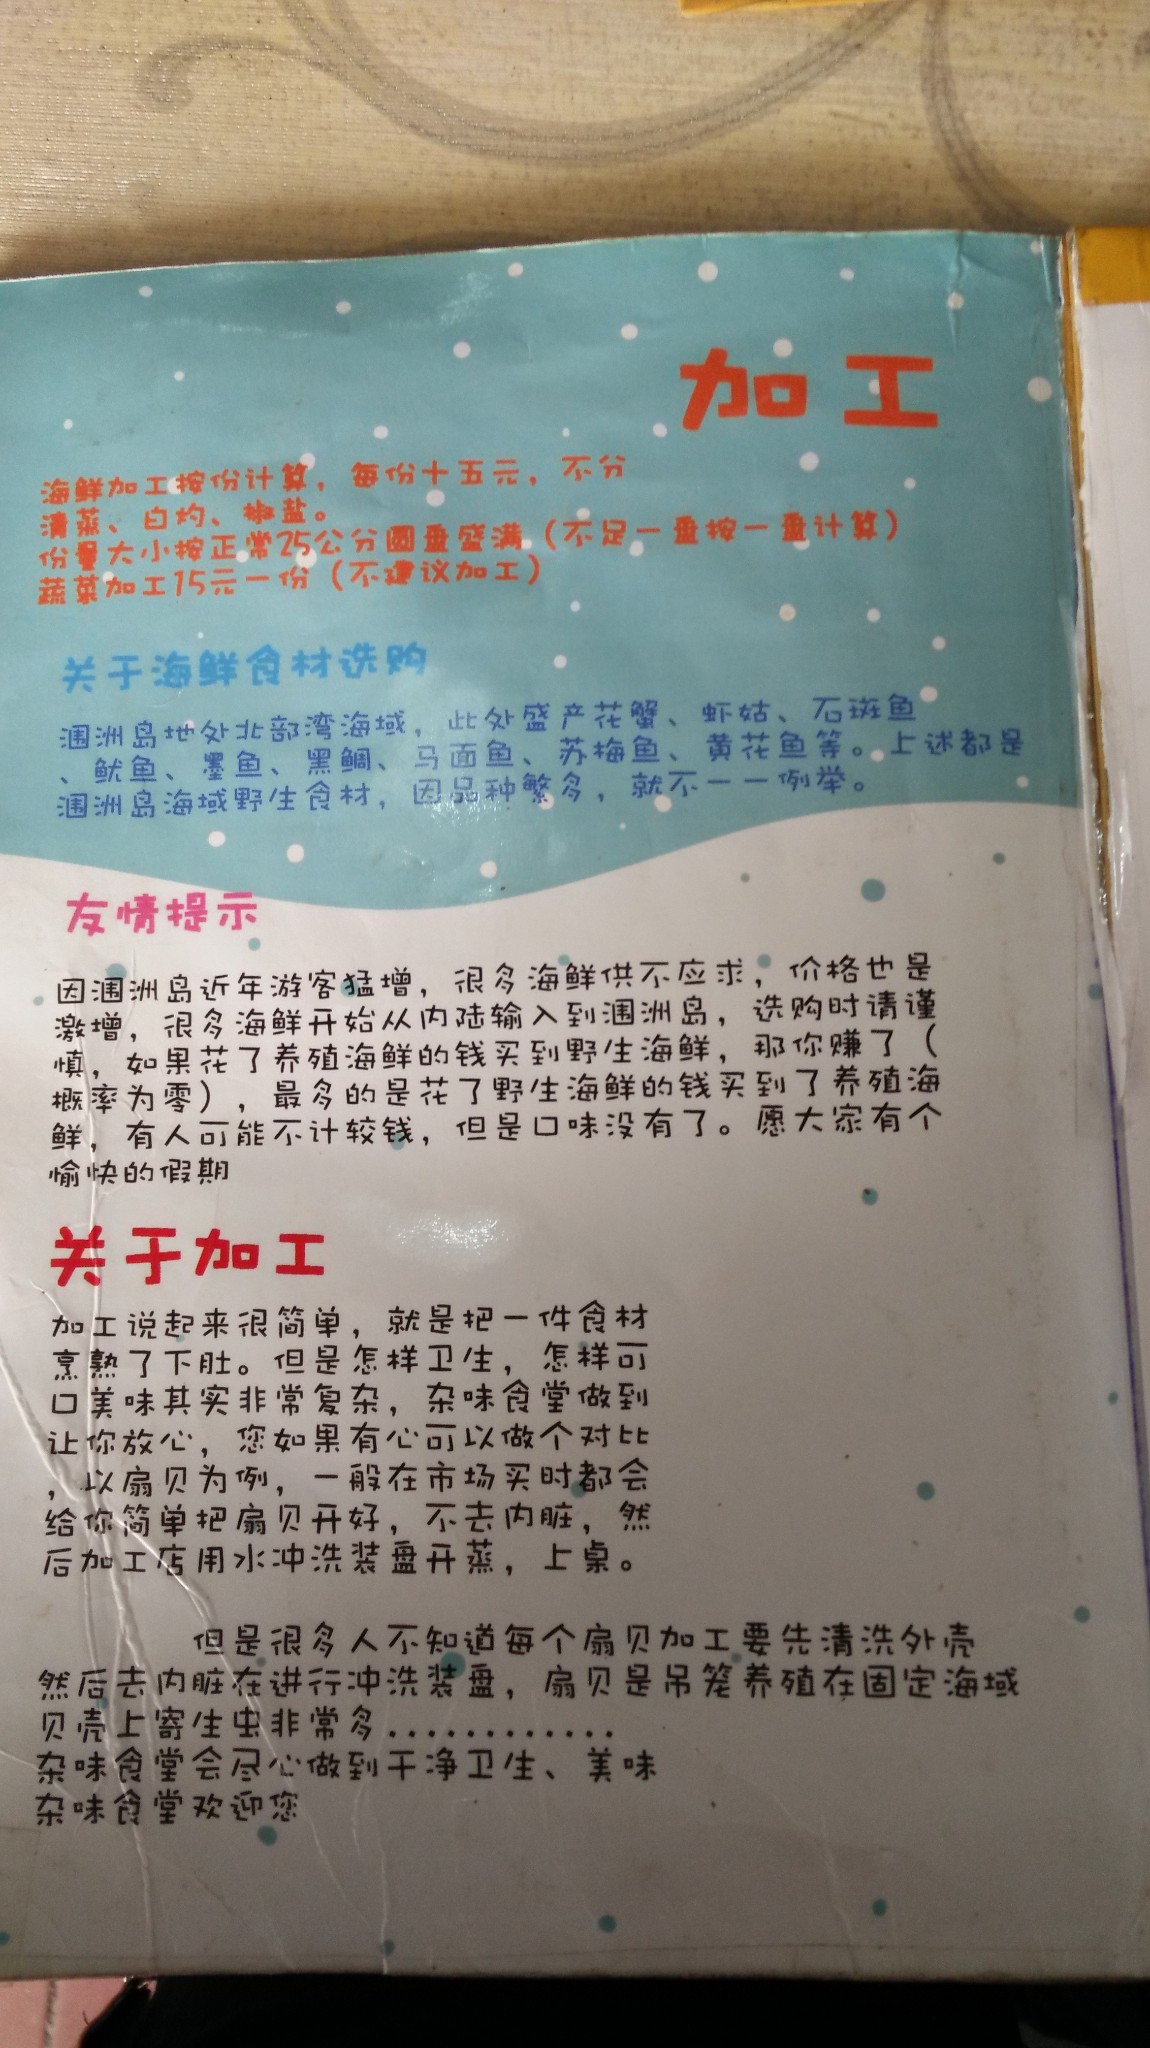 加工
海鲜加工按份计算，每份十五元，不分
清蒸、白灼、椒盐。
份量大小按正常25公分圆盘盛满（不足一盘按一盘计算）
蔬菜加工15元一份（不建议加工）
关于海鲜食材选购
涠洲岛地处北部湾海域，此处盛产花蟹、虾姑、石斑鱼
、鱿鱼、墨鱼、黑鲷、马面鱼、苏梅鱼、黄花鱼等。上述都是
涠洲岛海域野生食材，因品种繁多，就不一一例举。
友情提示
因涠洲岛近年游客猛增，很多海鲜供不应求，价格也是
激增，很多海鲜开始从内陆输入到涠洲岛，选购时请谨
慎，如果花了养殖海鲜的钱买到野生海鲜，那你赚了（
概率为零），最多的是花了野生海鲜的钱买到了养殖海
鲜，有人可能不计较钱，但是口味没有了。愿大家有个
愉快的假期
关于加工
加工说起来很简单，就是把一件食材
烹熟了下肚。但是怎样卫生，怎样可
口美味其实非常复杂，杂味食堂做到
让你放心，您如果有心可以做个对比
，以扇贝为例，一般在市场买时都会
给你简单把扇贝开好，不去内脏，然
后加工店用水冲洗装盘开蒸，上桌。
但是很多人不知道每个扇贝加工要先清洗外壳
然后去内脏在进行冲洗装盘，扇贝是吊笼养殖在固定海域
贝壳上寄生虫非常多............
杂味食堂会尽心做到干净卫生、美味
杂味食堂欢迎您